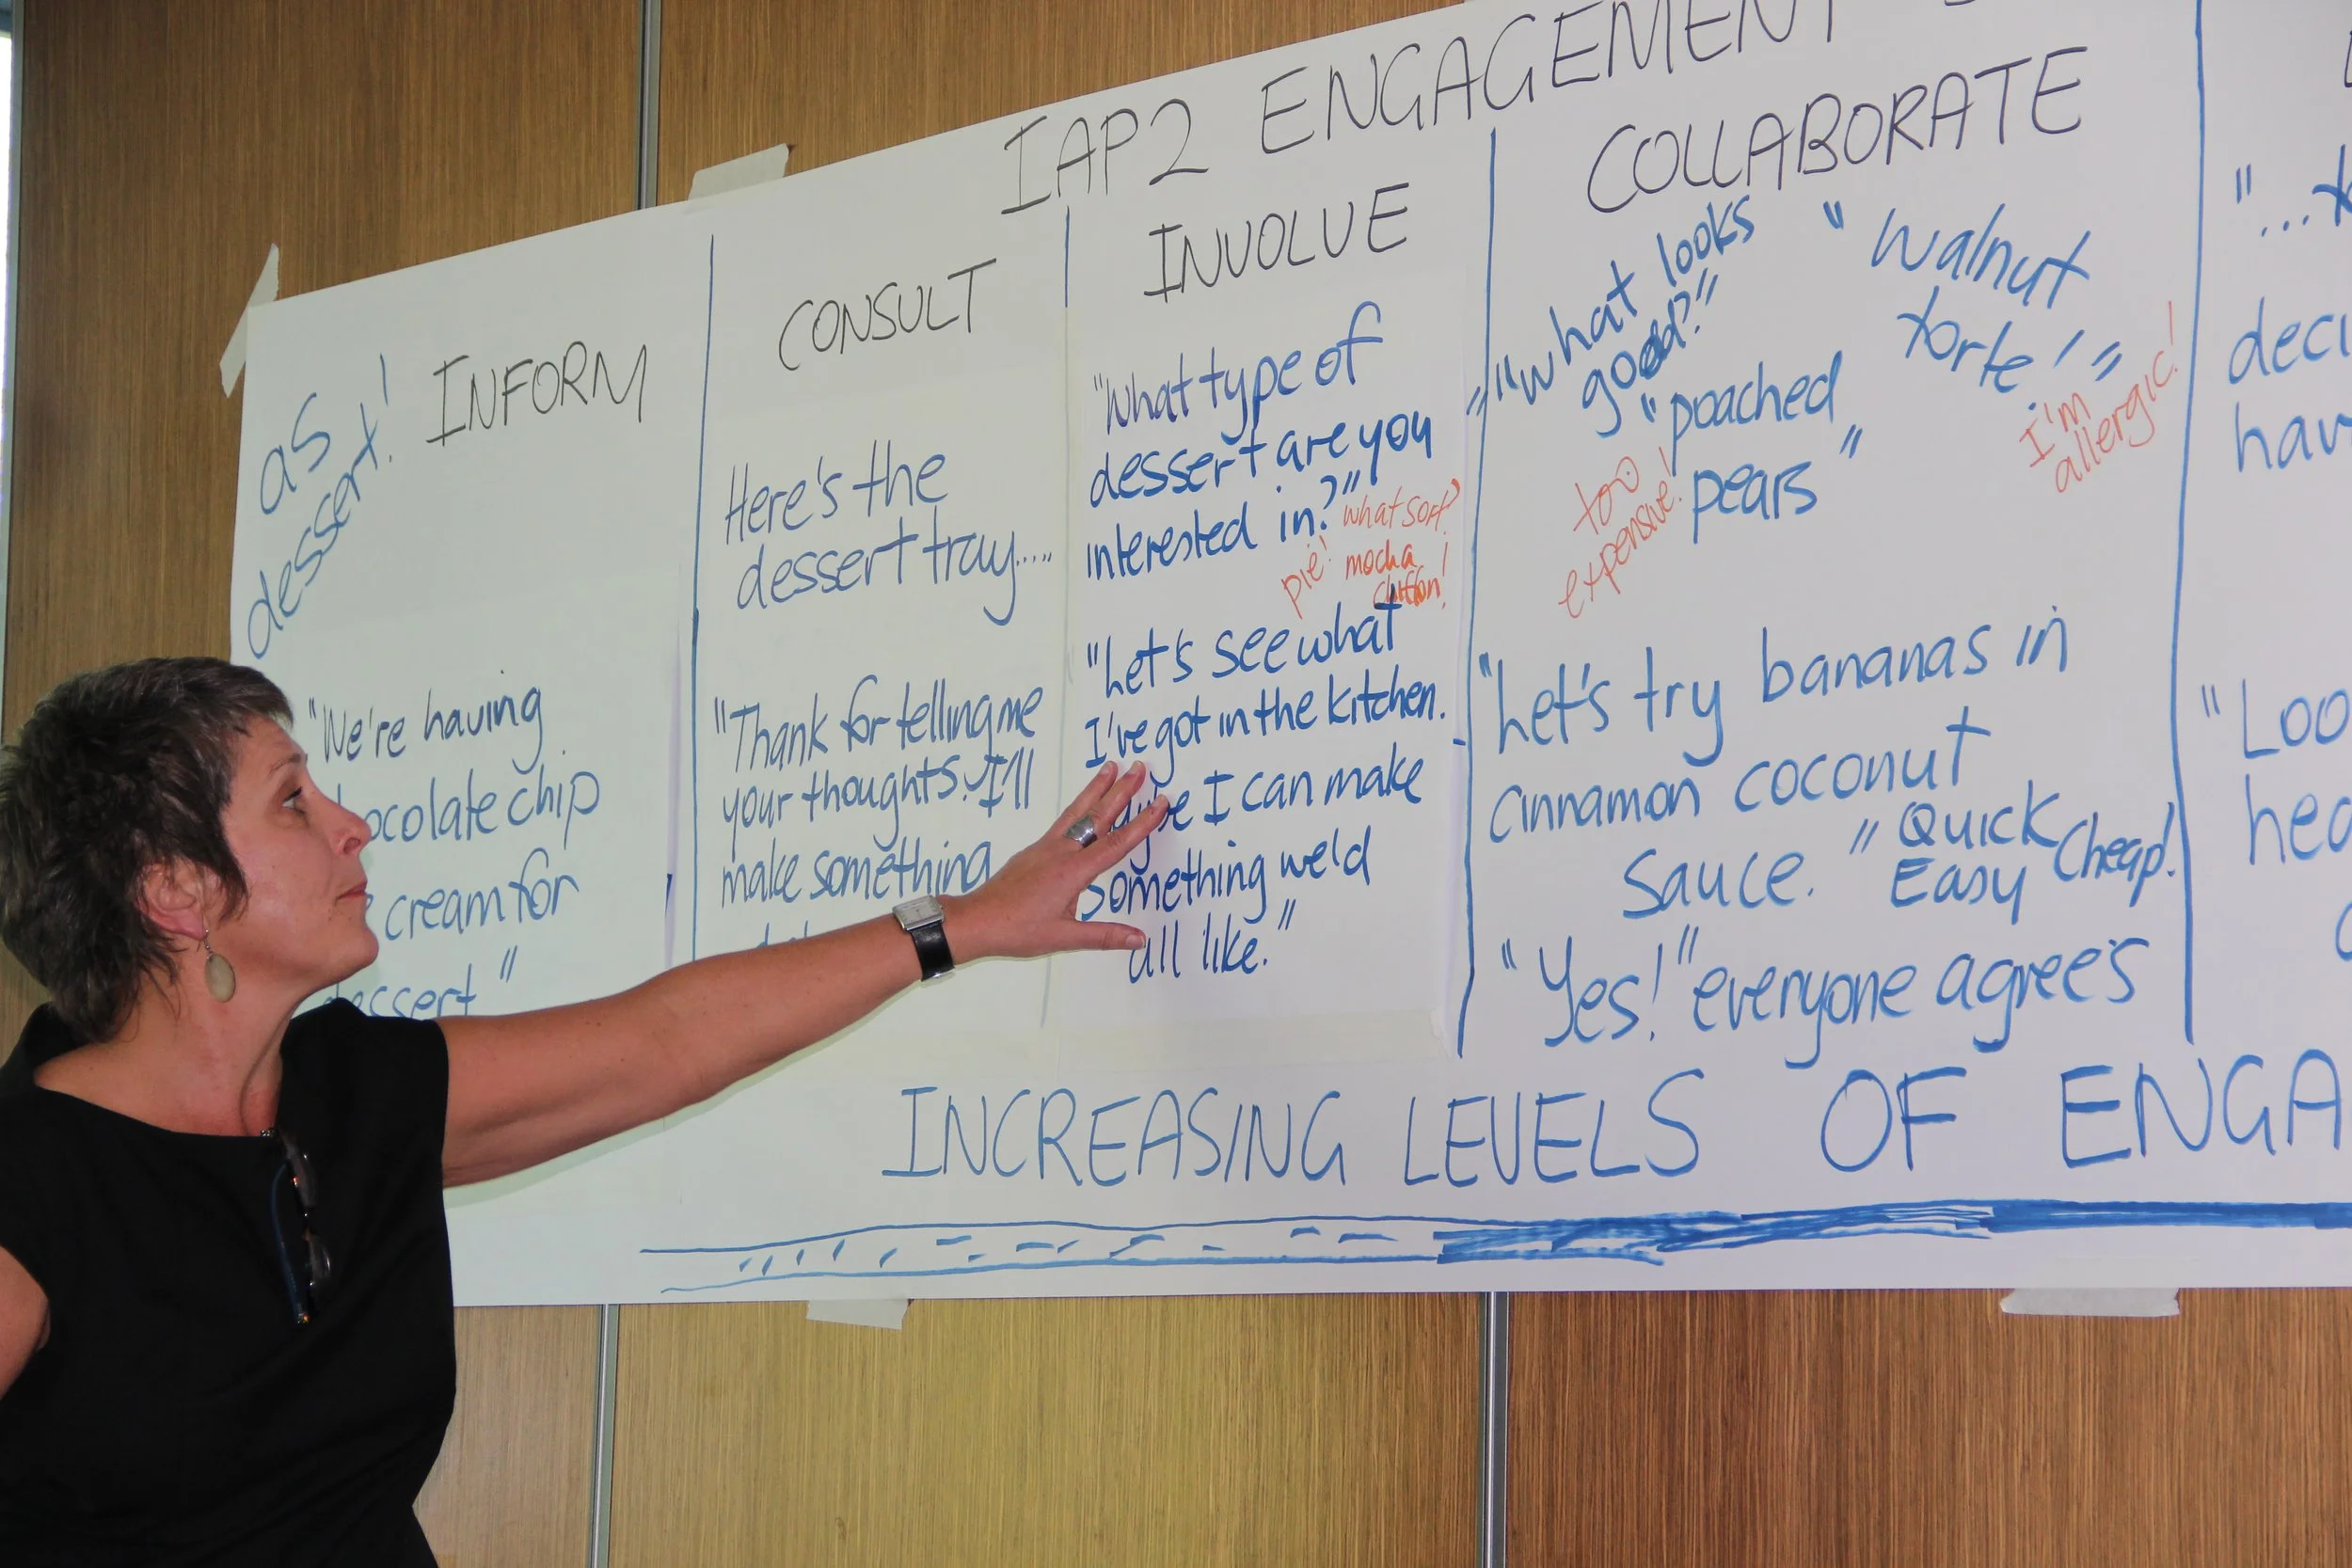 IAP2 ENGAGEMENT
as
dessert!
INFORM
"We're having
ocolate chip
cream for
dessert"
CONSULT
Here's the
dessert tray.....
"Thank for telling me
your thoughts. I'll
make something
INVOLVE
"What type of
dessert are you
interested in?"
what sort?
pie!
mocha
chiffon!
"Let's see what
I've got in the kitchen.
I can make
something we'd
all like."
COLLABORATE
"what looks
good?"
"walnut
torte!"
I'm
allergic!
"poached
pears"
too
expensive!
"Let's try bananas in
cinnamon coconut
sauce."
Quick
Easy
Cheap!
"Yes!" everyone agrees
"...t
deci
hav
"Loo
hea
INCREASING LEVELS OF ENGA